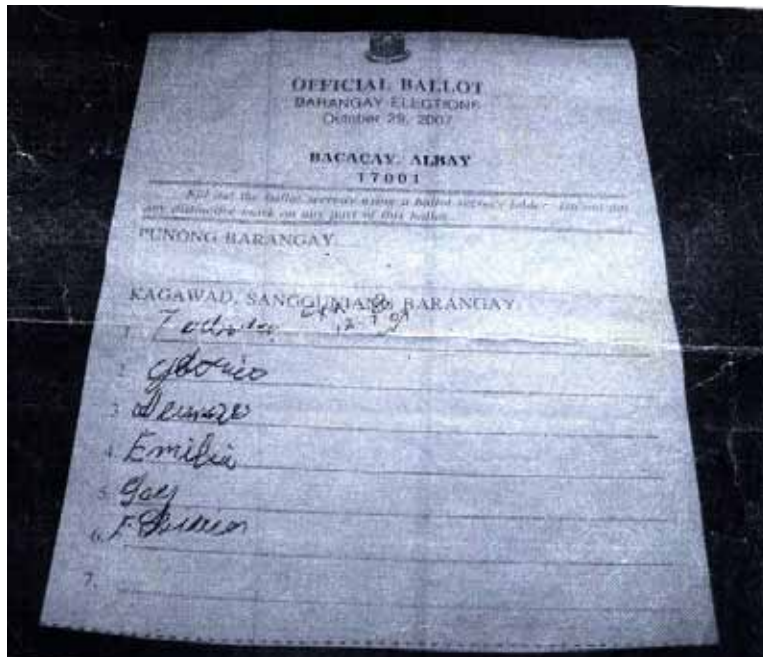 OFFICIAL BALLOT
BARANGAY ELECTIONS
October 29, 2007
BACACAY, ALBAY
17001
Fill out the ballot secretly using a ballot secrecy folder. Do not put
any distinctive mark on any part of this ballot.
PUNONG BARANGAY
KAGAWAD, SANGGUNIANG BARANGAY
1.
2.
3.
4. Emilia
5. Gay
6.
7.